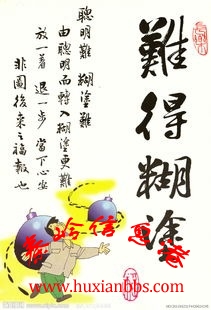 難得糊塗
聰明難 糊塗難
由聰明而轉入糊塗更難
放一著 退一步 當下心安
非圖後來之福報也
www.huxianbbs.com